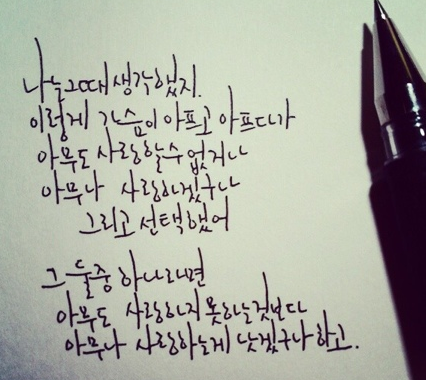 나는 그때 생각했지.
이렇게 가슴이 아프고 아프다가
아무도 사랑할수 없거나
아무나 사랑하겠구나
그리고 선택했어
그 둘중 하나라면
아무도 사랑하지 못하는것보다
아무나 사랑하는게 낫겠구나 하고.